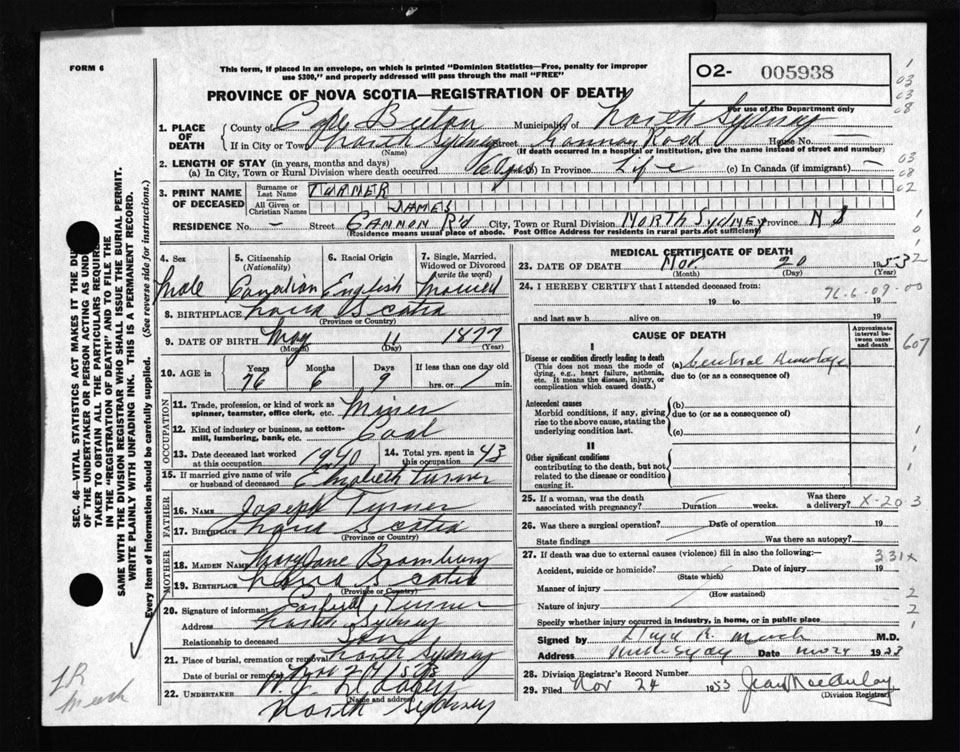 FORM 6
This form, if placed in an envelope, on which is printed "Dominion Statistics—Free, penalty for improper
use $300," and properly addressed will pass through the mail "FREE"
PROVINCE OF NOVA SCOTIA—REGISTRATION OF DEATH
O2- 005938
For use of the Department only
1. PLACE OF DEATH County of Cape Breton Municipality of North Sydney
If in City or Town North Sydney Street Cannon Road House No. —
(If death occurred in a hospital or institution, give name instead of street and number)
2. LENGTH OF STAY (in years, months and days)
(a) In City, Town or Rural Division where death occurred (b) In Province Life (c) In Canada (if immigrant) —
3. PRINT NAME OF DECEASED Surname or Last Name TURNER
All Given or Christian Names JAMES
RESIDENCE No. — Street CANNON R'd City, Town or Rural Division NORTH SYDNEY Province N S
(Residence means usual place of abode. Post Office Address for residents in rural parts not sufficient)
4. Sex Male
5. Citizenship (Nationality) Canadian
6. Racial Origin English
7. Single, Married, Widowed or Divorced (write the word) Married
8. BIRTHPLACE Nova Scotia
(Province or Country)
9. DATE OF BIRTH May 11 1877
(Month) (Day) (Year)
10. AGE in Years 76 Months 6 Days 9 If less than one day old hrs. or min.
OCCUPATION
11. Trade, profession, or kind of work as spinner, teamster, office clerk, etc. Miner
12. Kind of industry or business, as cotton-mill, lumbering, bank, etc. Coal
13. Date deceased last worked at this occupation 1940 14. Total yrs. spent in this occupation 43
15. If married give name of wife or husband of deceased Elizabeth Turner
FATHER
16. NAME Joseph Turner
17. BIRTHPLACE Nova Scotia
(Province or Country)
MOTHER
18. MAIDEN NAME Mary Jane
19. BIRTHPLACE Nova Scotia
(Province or Country)
20. Signature of informant Turner
Address North Sydney
Relationship to deceased Son
21. Place of burial, cremation or removal North Sydney
Date of burial or removal Nov
22. UNDERTAKER
(Name and address)
North Sydney
MEDICAL CERTIFICATE OF DEATH
23. DATE OF DEATH Nov. 20 1953
(Month) (Day) (Year)
24. I HEREBY CERTIFY that I attended deceased from:
76-6-09-00
19 to 19
and last saw h alive on 19
CAUSE OF DEATH
Approximate interval between onset and death
I
Disease or condition directly leading to death
(This does not mean the mode of dying, e.g., heart failure, asthenia, etc. It means the disease, injury, or complication which caused death.)
(a) Cerebral
due to (or as a consequence of)
Antecedent causes
Morbid conditions, if any, giving rise to the above cause, stating the underlying condition last.
(b)
due to (or as a consequence of)
(c)
II
Other significant conditions
contributing to the death, but not related to the disease or condition causing it.
607
25. If a woman, was the death associated with pregnancy? Duration weeks. Was there a delivery?
X-20-3
26. Was there a surgical operation? Date of operation 19
State findings Was there an autopsy?
27. If death was due to external causes (violence) fill in also the following:—
331X
Accident, suicide or homicide? Date of injury 19
(State which)
Manner of injury
(How sustained)
Nature of injury
Specify whether injury occurred in industry, in home, or in public place
Signed by M.D.
Address North Sydney Date Nov 24 19
28. Division Registrar's Record Number
29. Filed Nov 24 1953 Jean MacAulay
(Division Registrar)
SEC. 46—VITAL STATISTICS ACT MAKES IT THE DU
OF THE UNDERTAKER OR PERSON ACTING AS UND
TAKER TO OBTAIN ALL THE PARTICULARS REQUIRE
IN THE "REGISTRATION OF DEATH" AND TO FILE THE
SAME WITH THE DIVISION REGISTRAR WHO SHALL ISSUE THE BURIAL PERMIT.
WRITE PLAINLY WITH UNFADING INK. THIS IS A PERMANENT RECORD.
Every item of information should be carefully supplied. (See reverse side for instructions.)